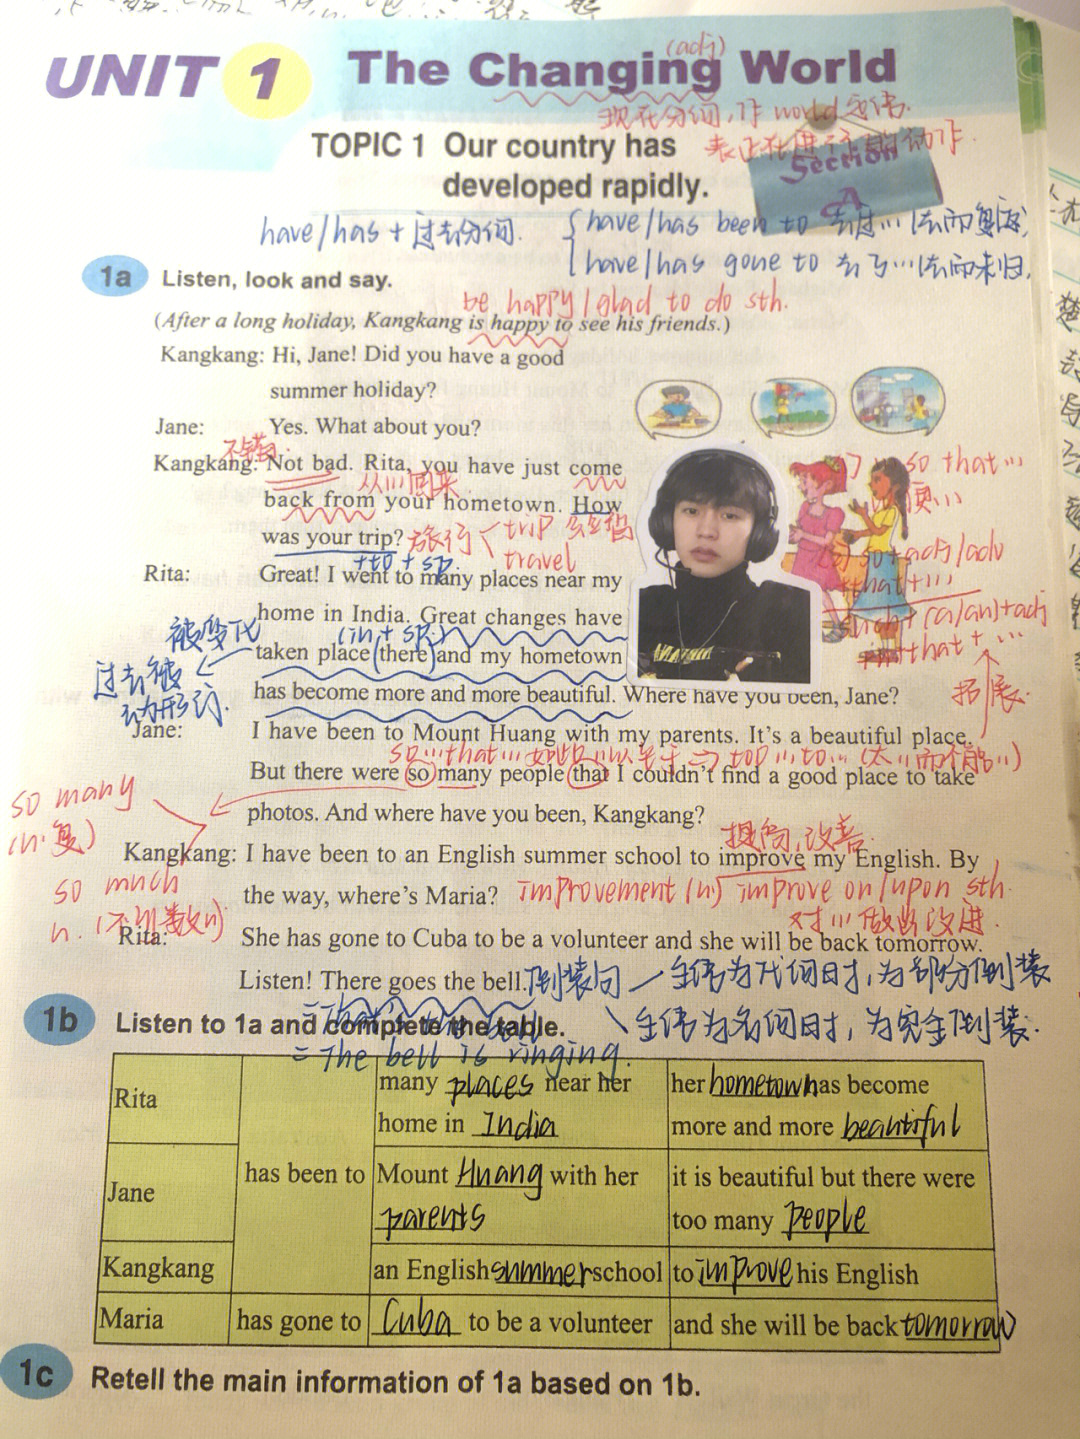 UNIT 1 The Changing World
(adj)
现在分词,作 world 定语.
表正在进行的动作.
TOPIC 1 Our country has
developed rapidly.
Section
A
have/has + 过去分词.
have/has been to 去过…(去而复返)
have/has gone to 去了…(去而未归).
1a Listen, look and say.
be happy/glad to do sth.
(After a long holiday, Kangkang is happy to see his friends.)
Kangkang: Hi, Jane! Did you have a good
summer holiday?
Jane: Yes. What about you?
不错.
Kangkang: Not bad. Rita, you have just come
从…回来
back from your hometown. How
was your trip?
旅行
trip
travel
+to + sp.
Rita: Great! I went to many places near my
home in India. Great changes have
(in + sp.)
taken place there and my hometown
has become more and more beautiful. Where have you been, Jane?
被变化
过去被
动形式.
so that…
so+adj/adv
that+…
such+(a/an)+adj
that + …
拓展.
Jane: I have been to Mount Huang with my parents. It's a beautiful place.
so…that…如此…以至于 ⇒ too…to…(太…而不能…)
But there were so many people that I couldn't find a good place to take
photos. And where have you been, Kangkang?
so many
(n.复)
so much
n.(不可数n)
提高,改善.
Kangkang: I have been to an English summer school to improve my English. By
the way, where's Maria?
improvement (n) improve on/upon sth.
对…做出改进.
Rita: She has gone to Cuba to be a volunteer and she will be back tomorrow.
Listen! There goes the bell.
倒装句
主语为代词时,为部分倒装
主语为名词时,为完全倒装.
= The bell is ringing.
1b Listen to 1a and complete the table.
Rita
has been to
many places near her
home in India
her hometown has become
more and more beautiful
Jane
Mount Huang with her
parents
it is beautiful but there were
too many people
Kangkang
an English summer school
to improve his English
Maria
has gone to
Cuba to be a volunteer
and she will be back tomorrow
1c Retell the main information of 1a based on 1b.